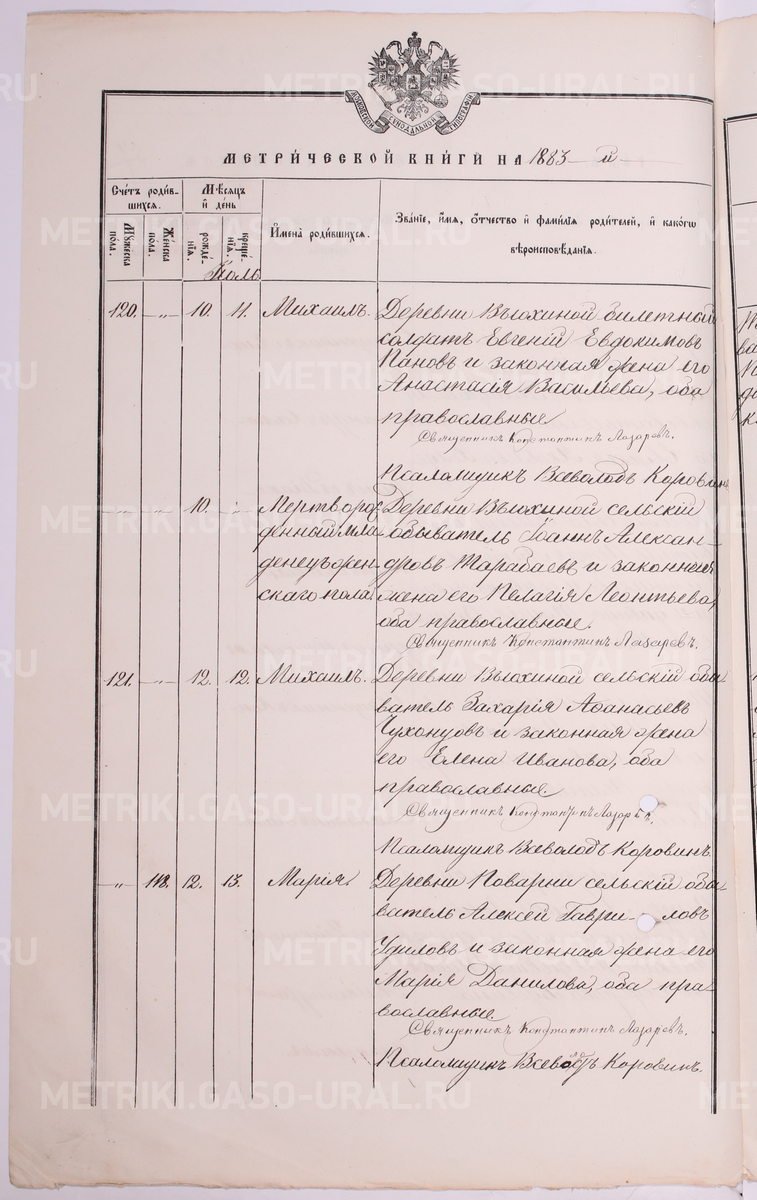 МОСКОВСКОЙ СѴНОДАЛЬНОЙ ТИПОГРАФІИ
МЕТРИ́ЧЕСКОЙ КНИ́ГИ НА 1883 й
Сче́тъ роди́в-
шихся.
Мѣ́сяцъ
и҆ де́нь
Му́жеска
по́ла.
Же́нска
по́ла.
рожде́-
нїѧ.
креще́-
нїѧ.
И҆мена̀ роди́вшихся.
Зва́нїе, и҆́мѧ, ѻ҆́тчество и҆ фами́лїѧ роди́телей, и҆ како́гѡ
вѣроисповѣ́данїѧ.
Іюль
120. — „ — 10. 11. Михаилъ.
Деревни Вьюхиной билетный
солдатъ Евгеній Евдокимовъ
Пановъ и законная жена его
Анастасія Васильева, оба
православные
Священникъ Константинъ Лазаревъ.
Псаломщикъ Всеволодъ Коровин
„ „ 10. „ Мертворож
денный мла
денецъ жен
скаго пола.
Деревни Вьюхиной сельскій
обыватель Іоаннъ Алексан-
дровъ Тарабаевъ и законная
жена его Пелагія Леонтьева,
оба православные.
Священникъ Константинъ Лазаревъ.
121. — „ — 12. 12. Михаилъ.
Деревни Вьюхиной сельскій обы
ватель Захарія Аѳанасьевъ
Чухонцовъ и законная жена
его Елена Иванова, оба
православные
Священникъ Константинъ Лазаревъ.
Псаломщикъ Всеволодъ Коровинъ.
— „ 118. 12. 13. Марія.
Деревни Поварни сельскій обы-
ватель Алексей Гаври-ловъ
Удиловъ и законная жена его
Марія Данилова, оба пра-
вославные.
Священникъ Константинъ Лазаревъ.
Псаломщикъ Всеволодъ Коровинъ.
METRIKI.GASO-URAL.RU